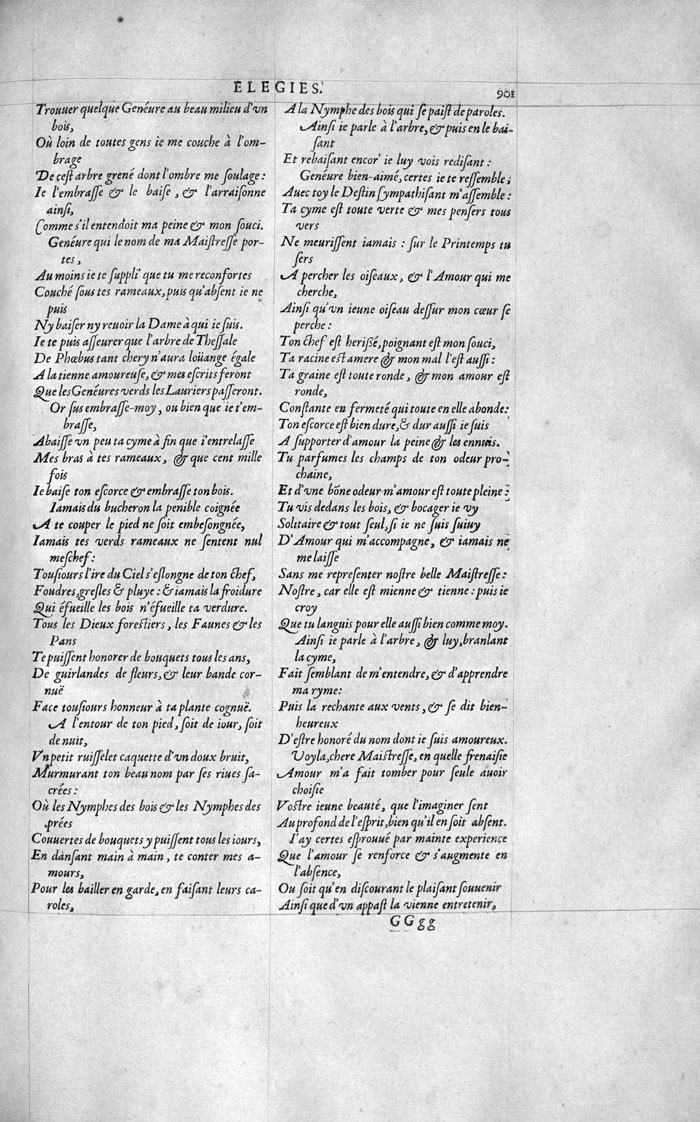 ELEGIES.
901
Trouuer quelque Geneure au beau milieu d'vn
bois,
Où loin de toutes gens ie me couche à l'om-
brage
De cest arbre grené dont l'ombre me soulage:
Ie l'embrasse & le baise, & l'arraisonne
ainsi,
Comme s'il entendoit ma peine & mon souci.
Geneure qui le nom de ma Maistresse por-
tes,
Au moins ie te suppli' que tu me reconfortes
Couché sous tes rameaux, puis qu'absent ie ne
puis
Ny baiser ny reuoir la Dame à qui ie suis.
Ie te puis asseurer que l'arbre de Thessale
De Phœbus tant chery n'aura loüange égale
A la tienne amoureuse, & mes escrits feront
Que les Geneures verds les Lauriers passeront.
Or sus embrasse-moy, ou bien que ie t'em-
brasse,
Abaisse vn peu ta cyme à fin que i'entrelasse
Mes bras à tes rameaux, & que cent mille
fois
Ie baise ton escorce & embrasse ton bois.
Iamais du bucheron la penible coignée
A te couper le pied ne soit embesongnée,
Iamais tes verds rameaux ne sentent nul
meschef:
Tousiours l'ire du Ciel s'eslongne de ton chef,
Foudres, gresles & pluye: & iamais la froidure
Qui éfueille les bois n'éfueille ta verdure.
Tous les Dieux forestiers, les Faunes & les
Pans
Te puissent honorer de bouquets tous les ans,
De guirlandes de fleurs, & leur bande cor-
nuë
Face tousiours honneur à ta plante cognuë.
A l'entour de ton pied, soit de iour, soit
de nuit,
Vn petit ruisselet caquette d'vn doux bruit,
Murmurant ton beau nom par ses riues sa-
crées:
Où les Nymphes des bois & les Nymphes des
prées
Couuertes de bouquets y puissent tous les iours,
En dansant main à main, te conter mes a-
mours,
Pour les bailler en garde, en faisant leurs ca-
roles,
A la Nymphe des bois qui se paist de paroles.
Ainsi ie parle à l'arbre, & puis en le bai-
sant
Et rebaisant encor' ie luy vois redisant:
Geneure bien-aimé, certes ie te ressemble;
Auec toy le Destin sympathisant m'assemble:
Ta cyme est toute verte & mes pensers tous
vers
Ne meurissent iamais: sur le Printemps tu
sers
A percher les oiseaux, & l'Amour qui me
cherche,
Ainsi qu'vn ieune oiseau dessur mon cœur se
perche:
Ton chef est herissé, poignant est mon souci,
Ta racine est amere & mon mal l'est aussi:
Ta graine est toute ronde, & mon amour est
ronde,
Constante en fermeté qui toute en elle abonde:
Ton escorce est bien dure, & dur aussi ie suis
A supporter d'amour la peine & les ennuis.
Tu parfumes les champs de ton odeur pro-
chaine,
Et d'vne bõne odeur m'amour est toute pleine:
Tu vis dedans les bois, & bocager ie vy
Solitaire & tout seul, si ie ne suis suiuy
D'Amour qui m'accompagne, & iamais ne
me laisse
Sans me representer nostre belle Maistresse:
Nostre, car elle est mienne & tienne: puis ie
croy
Que tu languis pour elle aussi bien comme moy.
Ainsi ie parle à l'arbre, & luy, branlant
la cyme,
Fait semblant de m'entendre, & d'apprendre
ma ryme:
Puis la rechante aux vents, & se dit bien-
heureux
D'estre honoré du nom dont ie suis amoureux.
Voyla, chere Maistresse, en quelle frenaisie
Amour m'a fait tomber pour seule auoir
choisie
Vostre ieune beauté, que l'imaginer sent
Au profond de l'esprit, bien qu'il en soit absent.
I'ay certes esprouué par mainte experience
Que l'amour se renforce & s'augmente en
l'absence,
Ou soit qu'en discourant le plaisant souuenir
Ainsi que d'vn appast la vienne entretenir,
GGgg